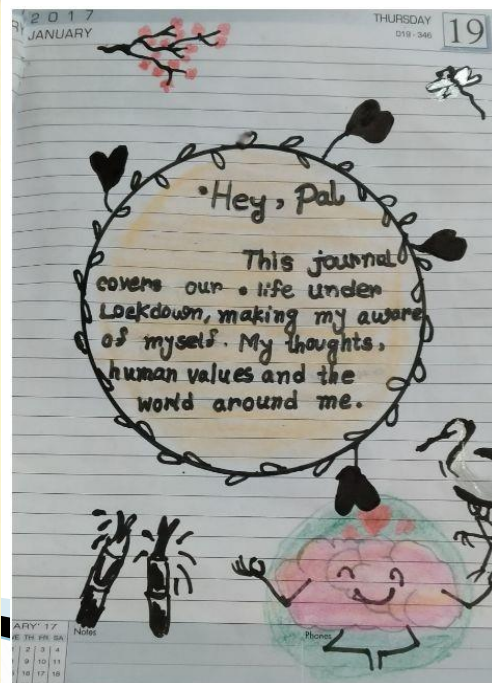 2017
JANUARY
THURSDAY
019 - 346
19
Hey, Pal
This journal
covers our life under
Lockdown, making my aware
of myself. My thoughts,
human values and the
world around me.
ARY' 17
Notes
Phones
TH FR SA
2 3 4
9 10 11
16 17 18